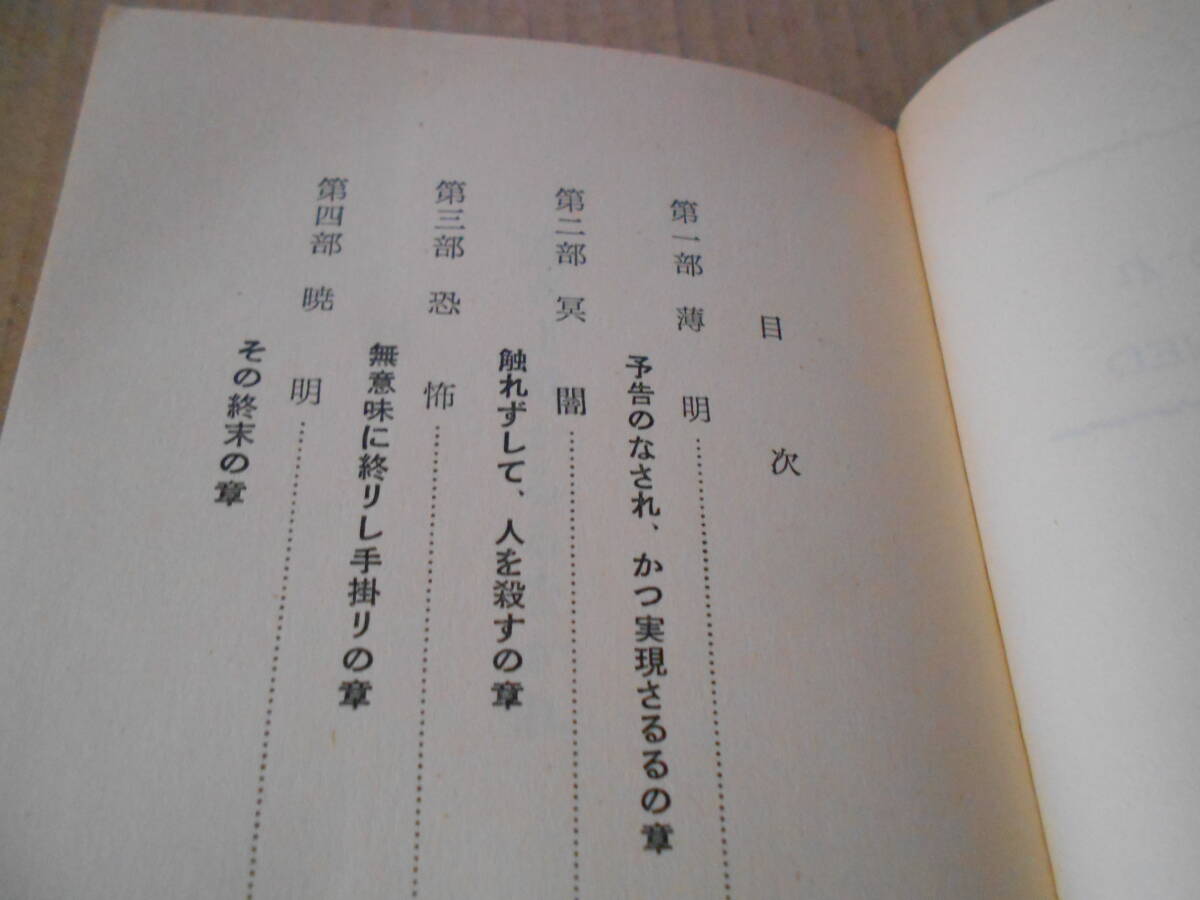 目次
第一部 薄明
予告のなされ、かつ実現さるるの章
第二部 冥闇
触れずして、人を殺すの章
第三部 恐怖
無意味に終りし手掛りの章
第四部 暁明
その終末の章